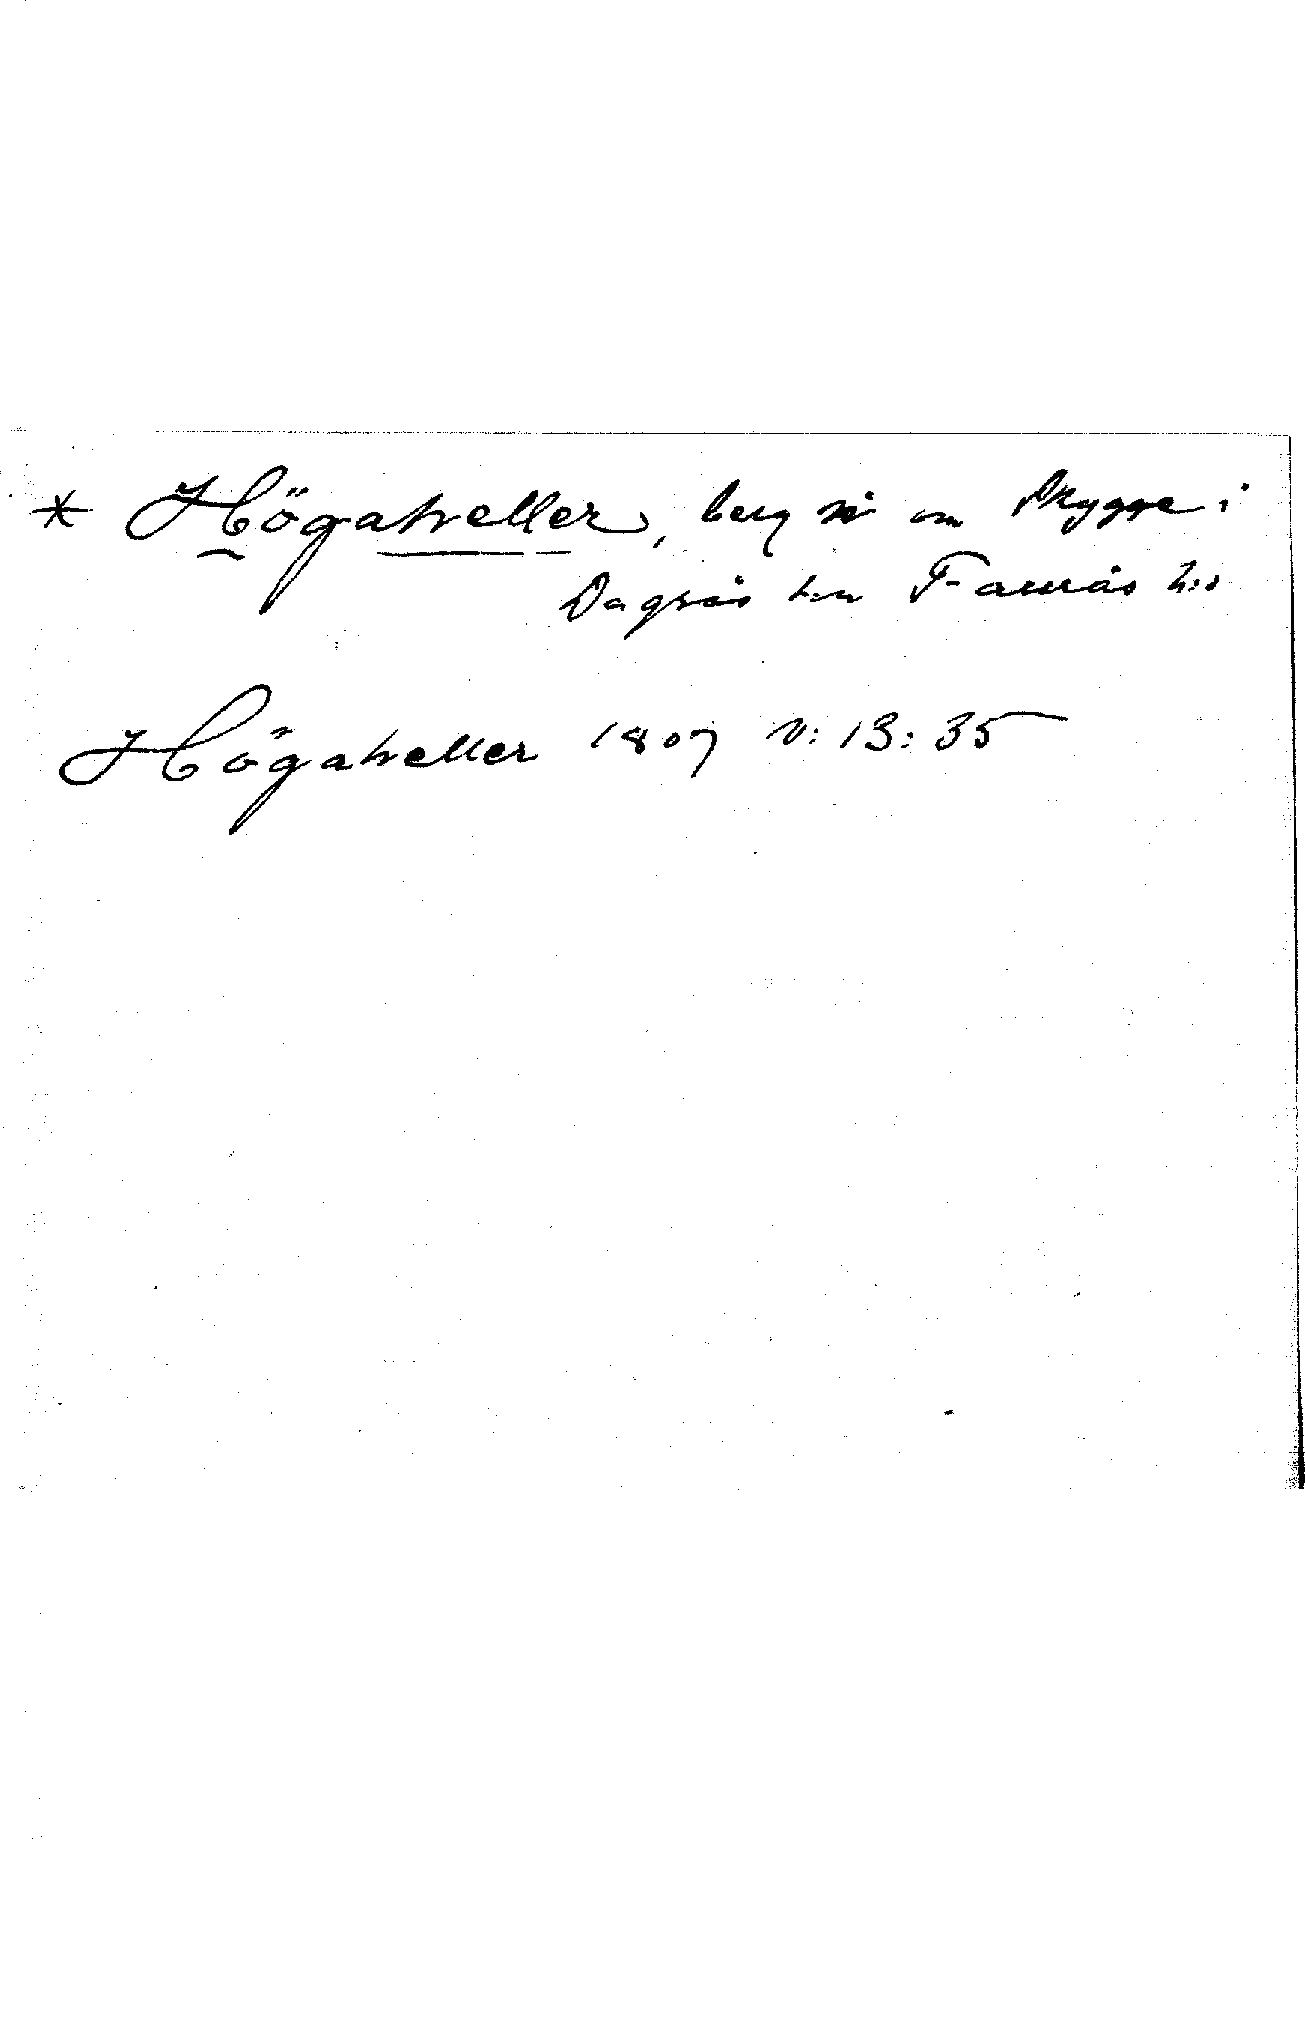 * Högaheller, berg  om Skygge i
Dagsås  Fauräs h:d
Högaheller 1807 V: 13: 35